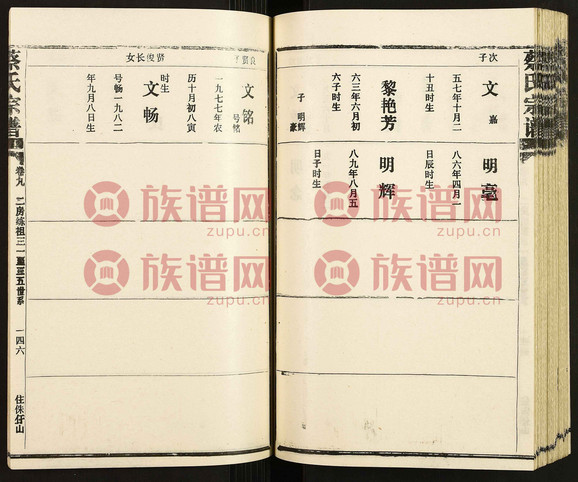 蔡氏宗谱
次子
文嘉
五七年十月二
十丑时生
黎艳芳
六三年六月初
六子时生
子 明辉 豪
明毫
八六年四月一
日辰时生
明辉
八九年八月五
日子时生
良贤子
文铭
号铭
一九七七年农
历十月初八寅
时生
贤俊长女
文畅
号畅一九八二
年九月八日生
蔡氏宗谱
卷九
二房练祖三一至三五世系
一四六
住侏仔山
族谱网
zupu.cn
族谱网
zupu.cn
族谱网
zupu.cn
族谱网
zupu.cn